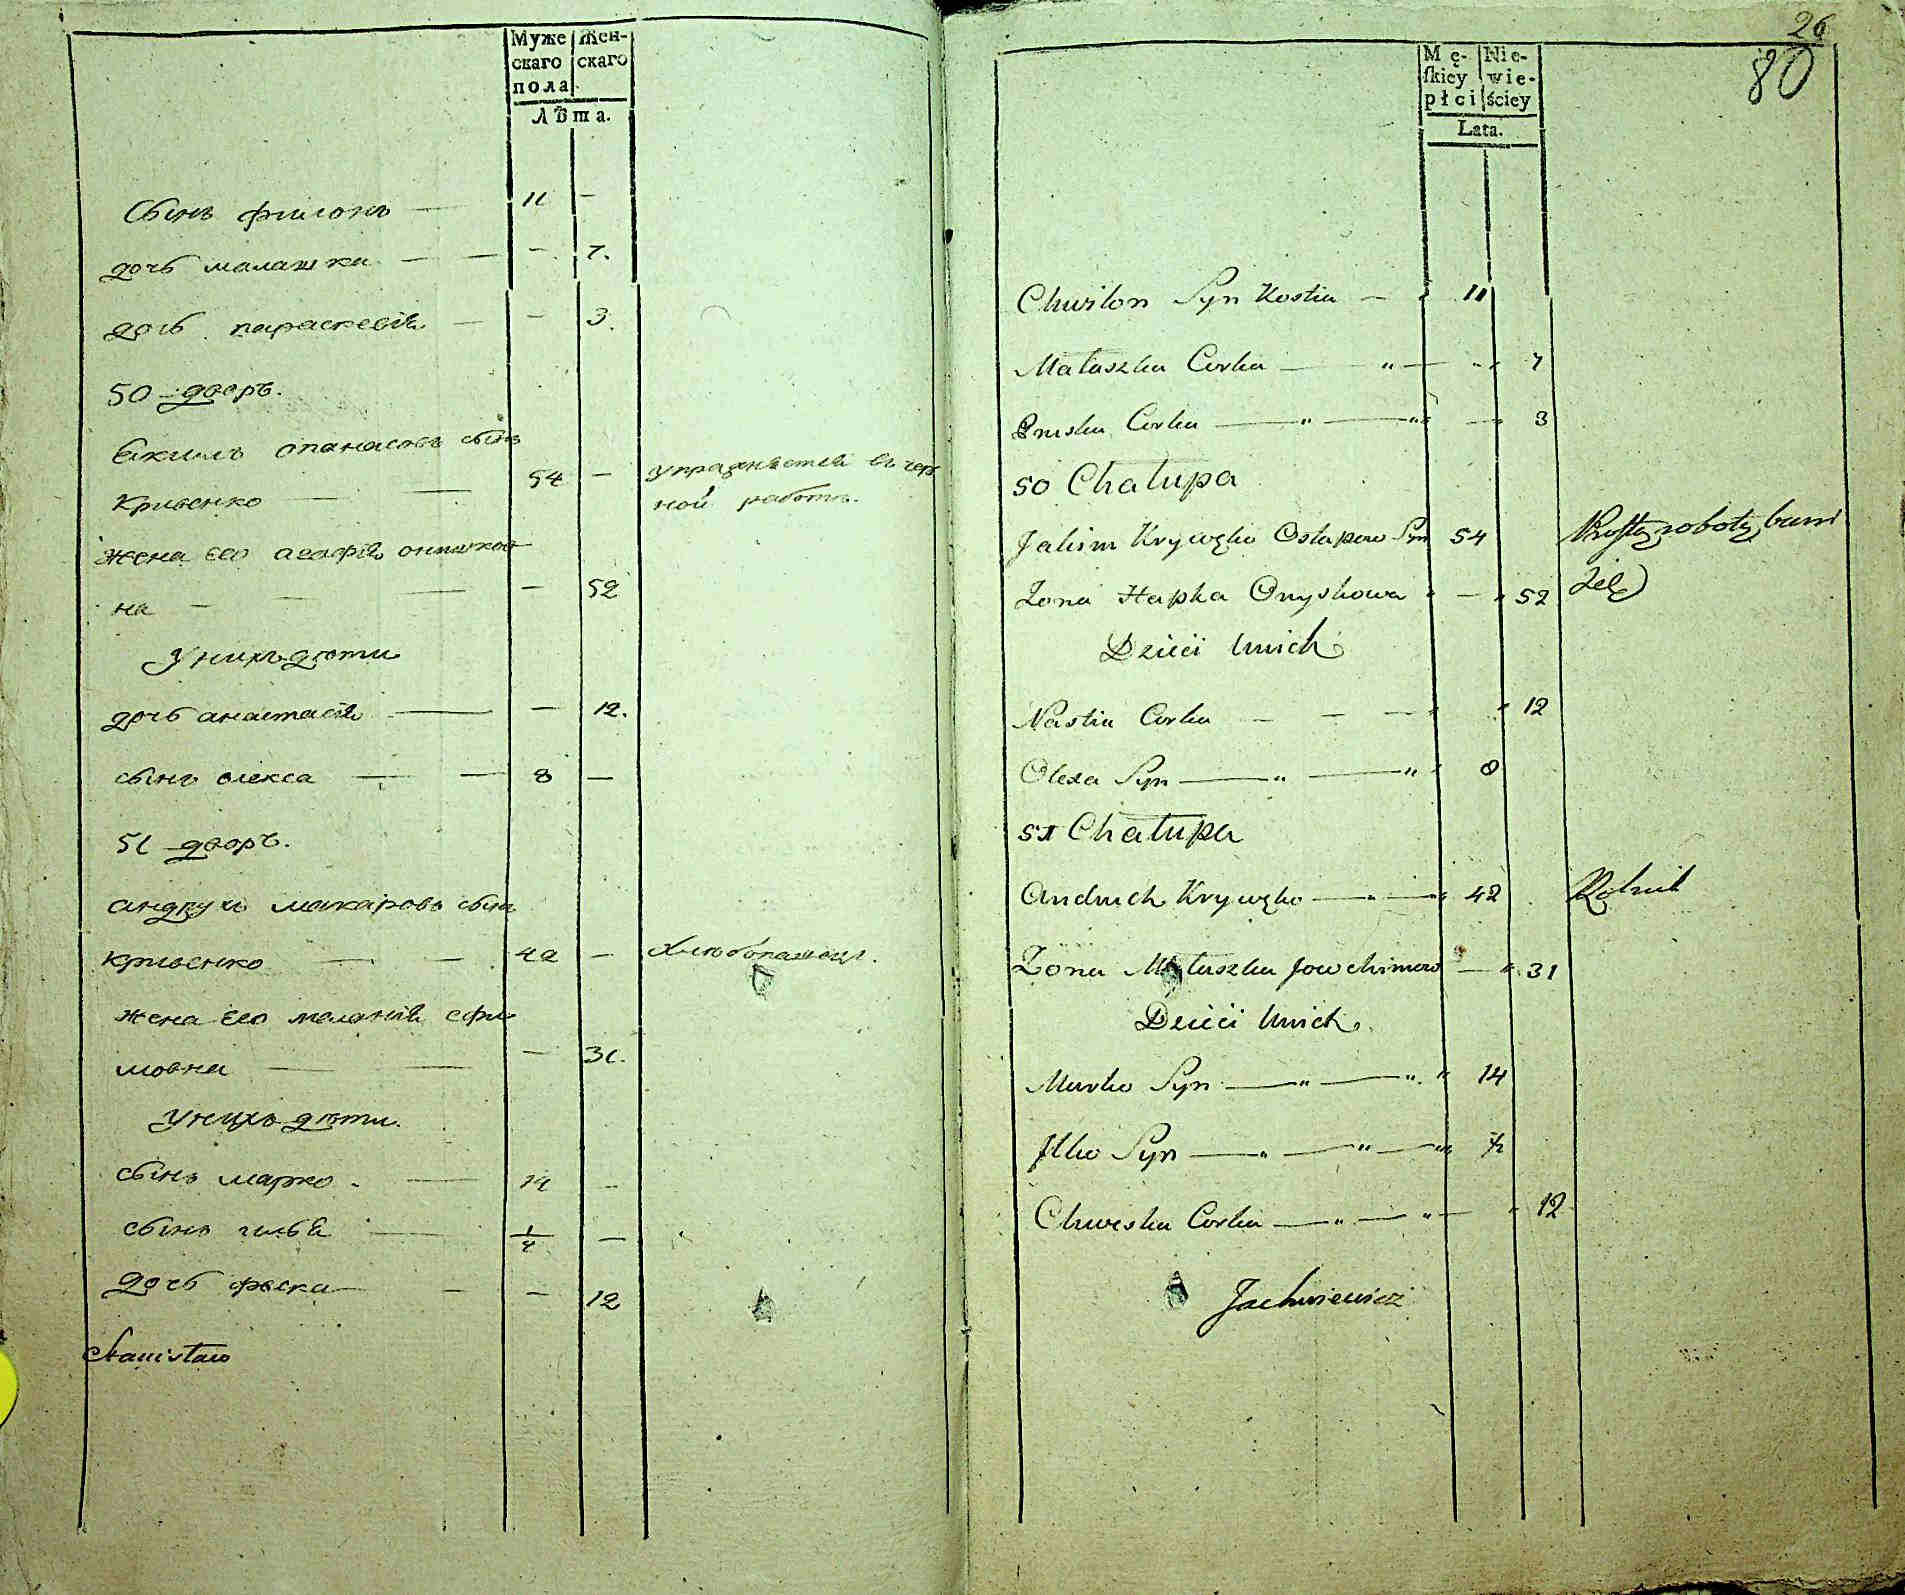 Муже Жен-
скаго скаго
пола
Лѣта.
сынъ филонъ — 11 —
дочь малашка — — — 7.
дочь параскевія — — 3.
50 дворъ.
екимъ опанасовъ сынъ
Кривенко — — 54 — упражняется въ чер
ной работѣ.
жена его агафія онишков
на — — — — 52
у нихъ дѣти
дочь анастасія — — 12.
сынъ олекса — — 8 —
51 дворъ.
андрухъ макаровъ сынъ
кривенко — — 42 — хлѣбопашецъ.
жена его меланія ефи
мовна — — — 31.
у нихъ дѣти.
сынъ марко — 14 —
сынъ илья — 1/4 —
дочь феска — — — 12
Stanisław
26
80
Mę- Nie-
skiey wie-
płci ściey
Lata.
Chwilon Syn Kostia — 11
Małaszka Corka — " — 7
Pruska Corka — " — " — 3
50 Chałupa
Jakim Krywęko Ostapow Syn 54 Prostą robotą bawi
Zona Hapka Onyskowa " — " 52 Się
Dzieci Unich
Nastia Corka — — — " 12
Olexa Syn — " — " 8
51 Chałupa
Andruch Krywęko — " — " 42 Rolnik
Zona Małaszka Jowchimow — " 31
Dzieci Unich
Marko Syn — " — " " 14
Ilko Syn — " — " — "
Chweska Corka — " — " — " 12
Jachniewicz